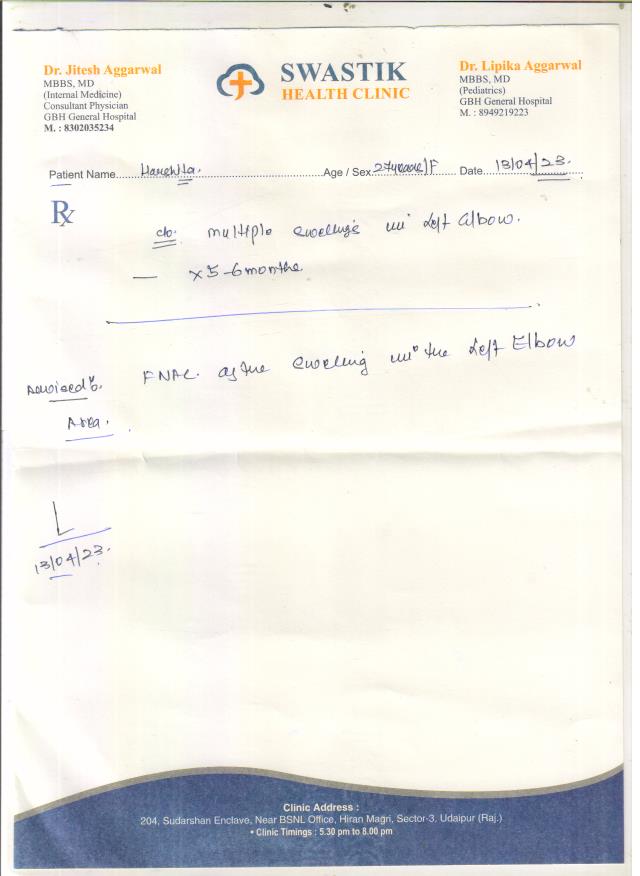 Dr. Jitesh Aggarwal
MBBS, MD
(Internal Medicine)
Consultant Physician
GBH General Hospital
M. : 8302035234
SWASTIK
HEALTH CLINIC
Dr. Lipika Aggarwal
MBBS, MD
(Pediatrics)
GBH General Hospital
M. : 8949219223
Patient Name Age / Sex 27years/F Date 13/04/23.
Rx
c/o. multiple swellings in Left Elbow.
— x 5-6 months
Advised FNAC. of the swelling in the Left Elbow
Area.
13/04/23.
Clinic Address :
204, Sudarshan Enclave, Near BSNL Office, Hiran Magri, Sector-3, Udaipur (Raj.)
• Clinic Timings : 5.30 pm to 8.00 pm